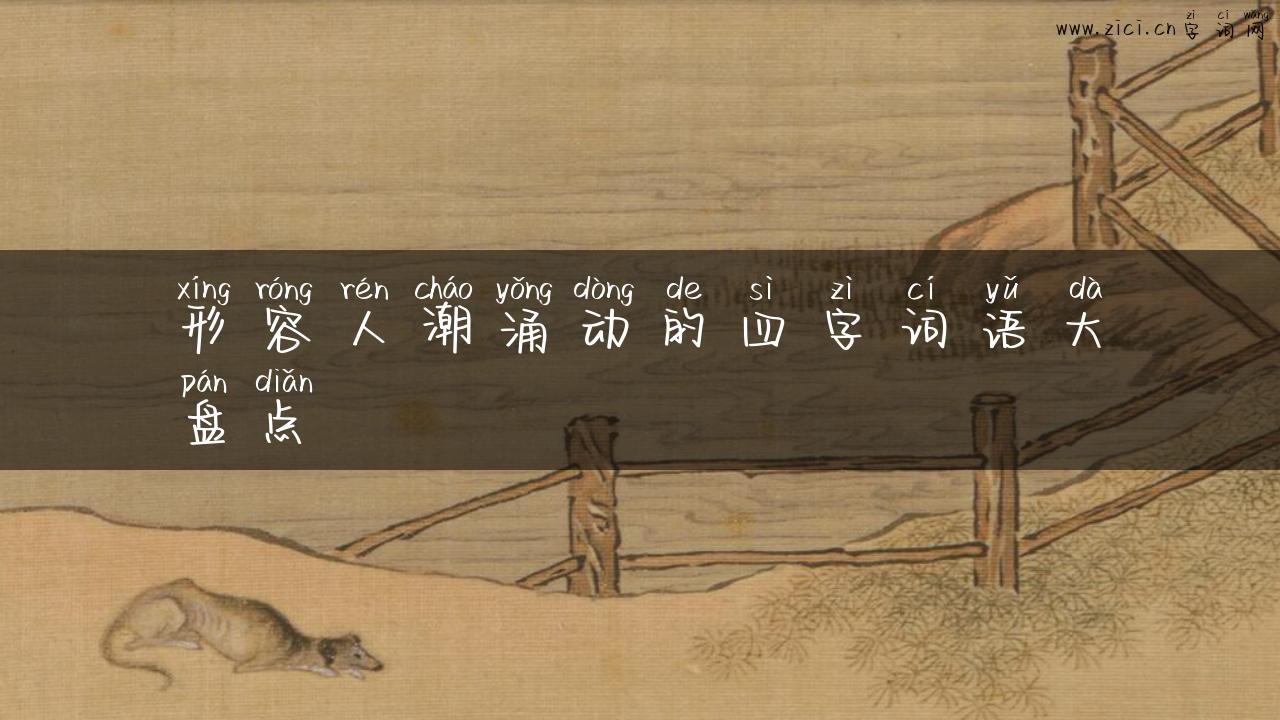 zì cí wǎng
www.zici.cn字词网
xíng róng rén cháo yǒng dòng de sì zì cí yǔ dà
形容人潮涌动的四字词语大
pán diǎn
盘点